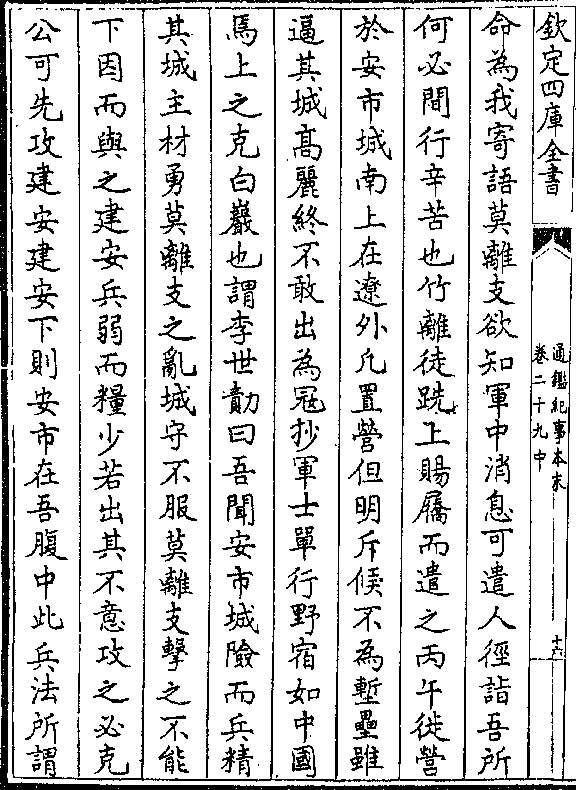 欽定四庫全書
通鑑紀事本末
卷二十九中
十六
命為我寄語莫離支欲知軍中消息可遣人徑詣吾所
何必間行辛苦也竹離徒跣上賜屩而遣之丙午徙營
於安市城南上在遼外凡置營但明斥候不為塹壘雖
逼其城高麗終不敢出為冦抄軍士單行野宿如中國
焉上之克白巖也謂李世勣曰吾聞安市城險而兵精
其城主材勇莫離支之亂城守不服莫離支擊之不能
下因而與之建安兵弱而糧少若出其不意攻之必克
公可先攻建安建安下則安市在吾腹中此兵法所謂